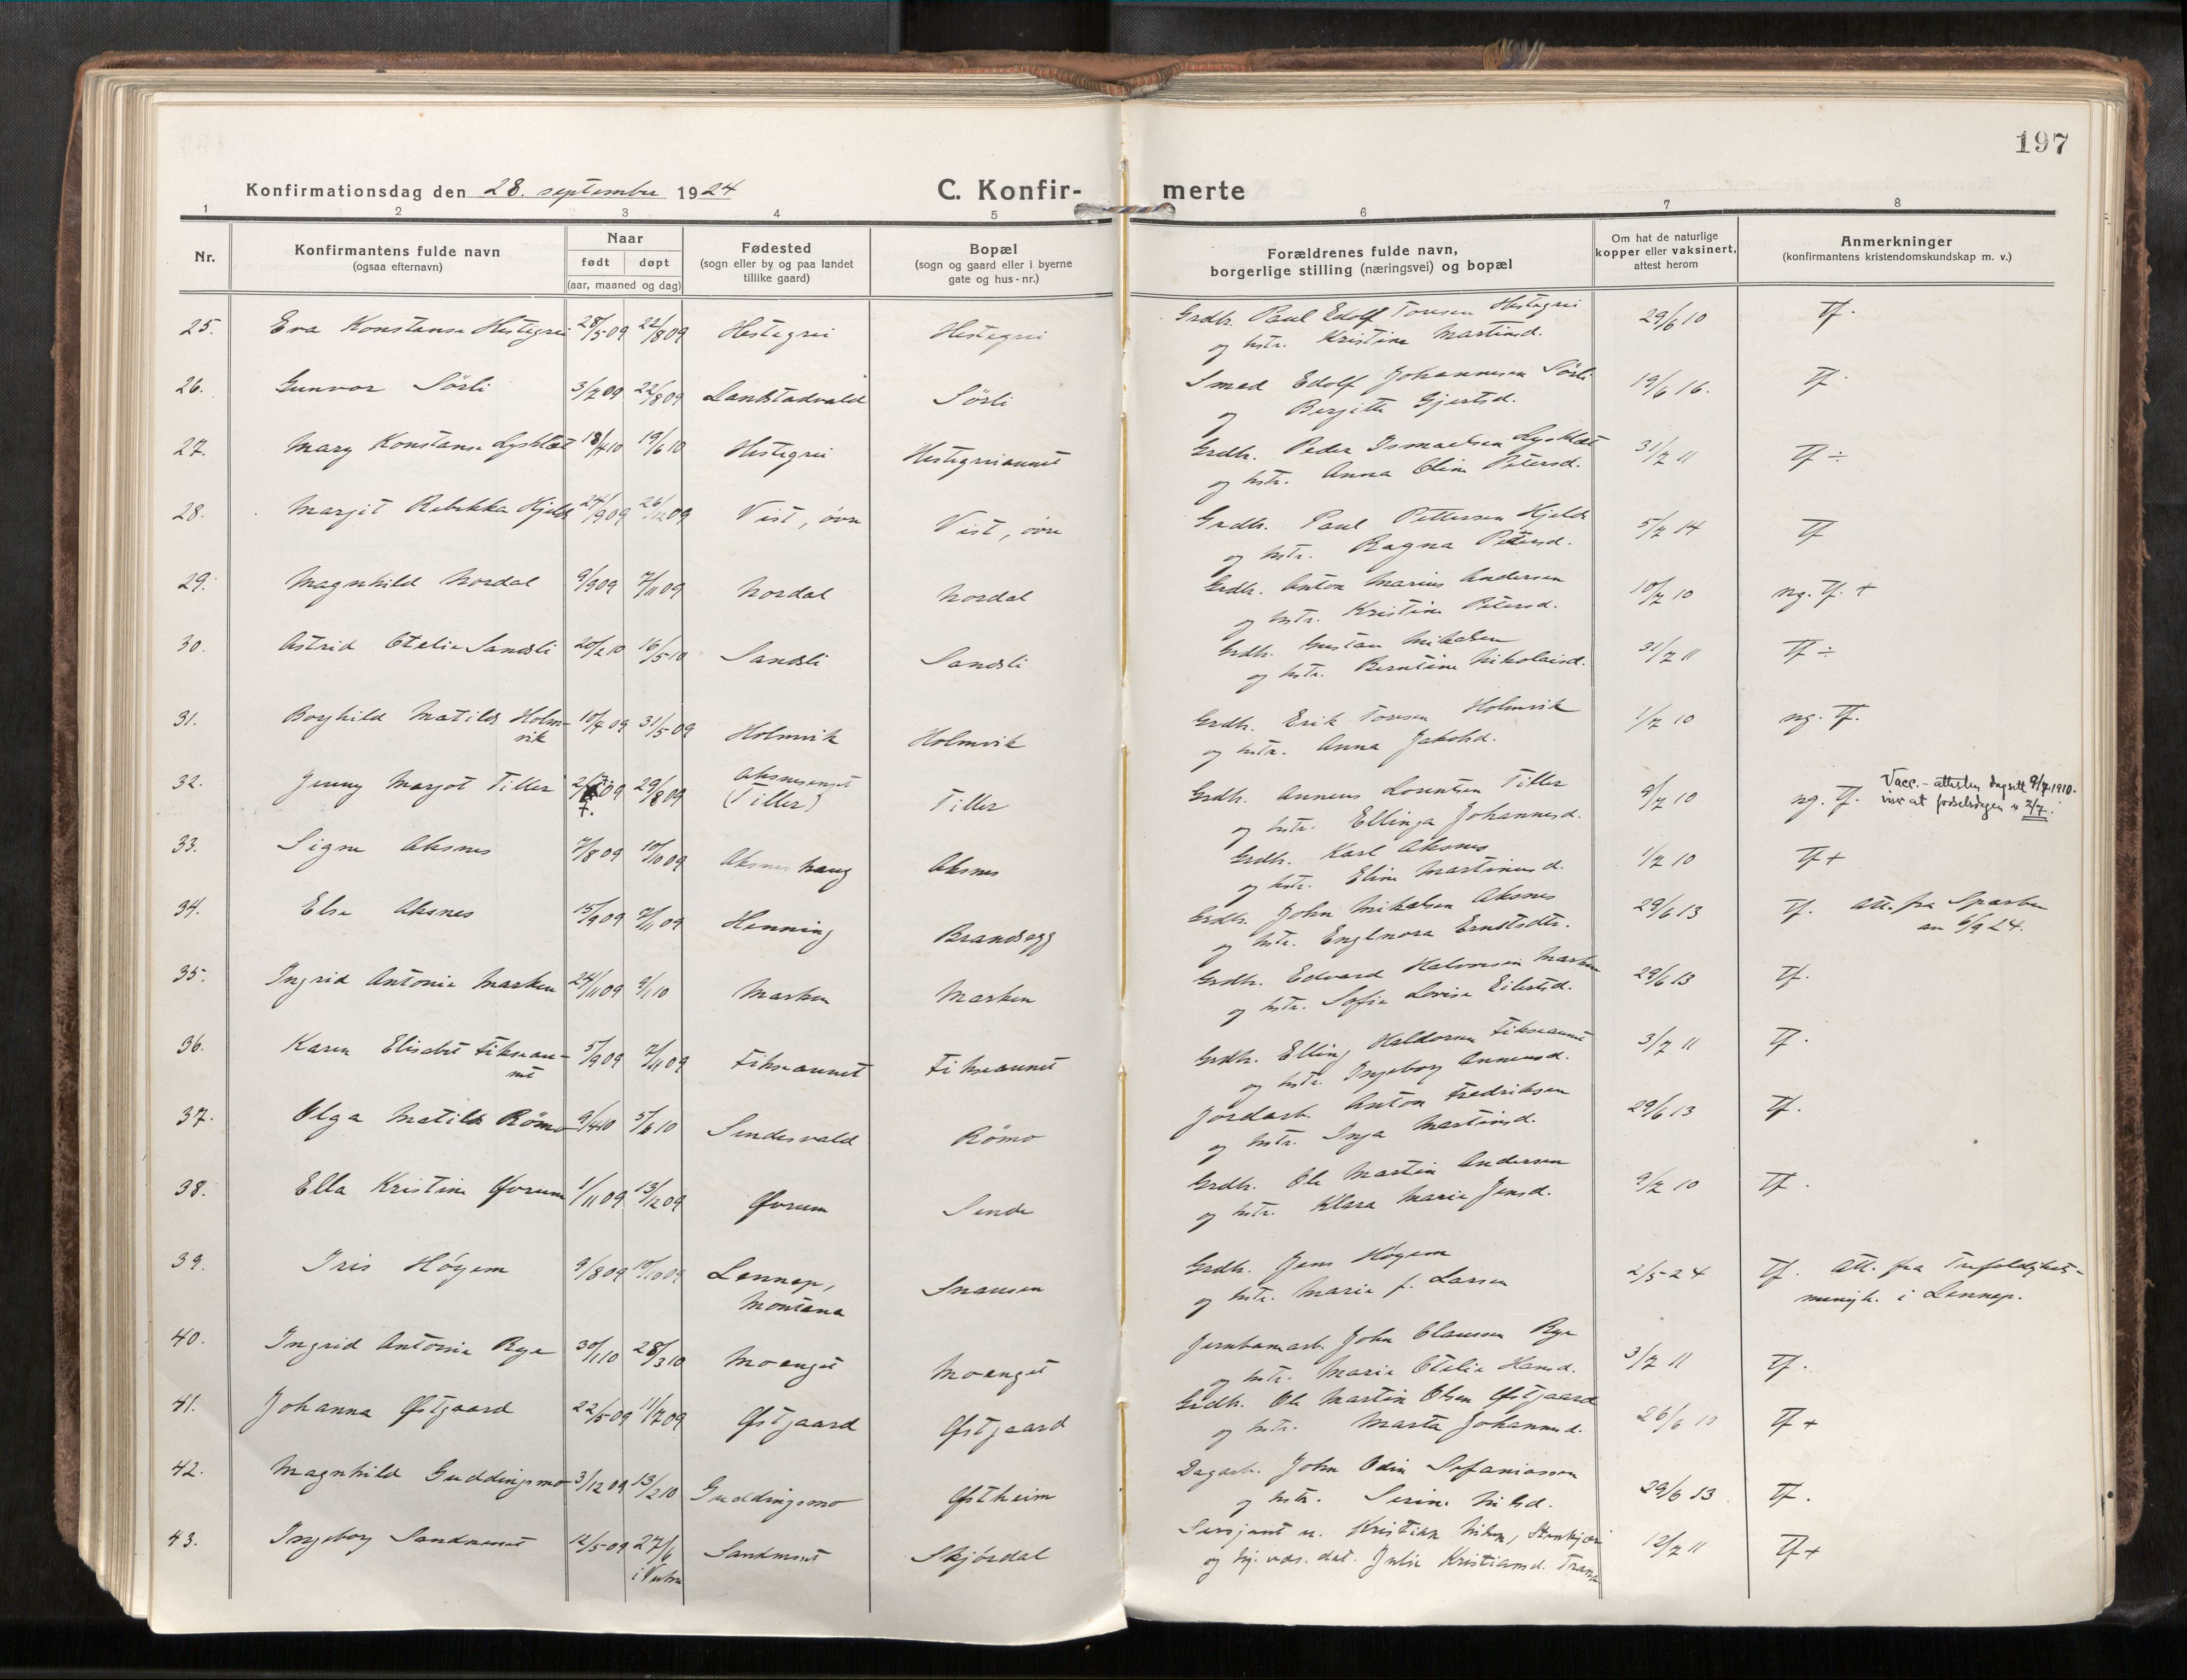 197
Konfirmationsdag den 28. september 1924
C. Konfir-
merte
1 2 3 4 5 6 7 8
Nr.
Konfirmantens fulde navn
(ogsaa efternavn)
Naar
født døpt
(aar, maaned og dag)
Fødested
(sogn eller by og paa landet
tillike gaard)
Bopæl
(sogn og gaard eller i byerne
gate og hus-nr.)
Forældrenes fulde navn,
borgerlige stilling (næringsvei) og bopæl
Om hat de naturlige
kopper eller vaksinert,
attest herom
Anmerkninger
(konfirmantens kristendomskundskap m. v.)
25. Eva Konstanse Hestegrei 28/5 09 22/8 09 Hestegrei Hestegrei Grdbr. Paul Edolf Toresen Hestegrei 29/6 10 Tf.
og hstr. Kristine Martinsd.
26. Gunvor Sörli 3/7 09 22/8 09 Landstadvald Sörli Smed Edolf Johannesen Sörli 19/6 16. Tf.
og Bergitte Gjertsd.
27. Mary Konstanse Lysklæt 18/4 10 19/6 10 Hestegrei Hestegreiaunet Grdbr. Peder Ismaelsen Lysklæt 31/7 11 Tf ÷
og hstr. Anna Oline Petersd.
28. Margit Rebekka Hjelde 24/9 09 26/12 09 Vist, övre Vist, övre Grdbr. Paul Pettersen Hjelde 5/7 14 Tf
og hstr. Ragna Petersd.
29. Magnhild Nordal 9/9 09 7/11 09 Nordal Nordal Grdbr. Anton Marius Andersen 10/7 10 ng. Tf. +
og hstr. Kristine Petersd.
30. Astrid Otelie Sandsli 20/2 10 16/5 10 Sandsli Sandsli Grdbr. Gustav Mikalsen 31/7 11 Tf ÷
og hstr. Berntine Nikolaisd.
31. Borghild Matilde Holm- 10/4 09 31/5 09 Holmvik Holmvik Grdbr. Erik Toresen Holmvik 1/7 10 ng. Tf.
vik og hstr. Anna Jakobsd.
32. Jenny Margot Tiller 2/7 09 29/8 09 Aksnesenget Tiller Grdbr. Anneus Lorntsen Tiller 9/7 10 ng. Tf. Vacc.-attesten dagsett 9/7 1910.
7. (Tiller) og hstr. Ellinga Johannesd. viser at fødselsdagen er 2/7.
33. Signe Aksnes 7/8 09 10/10 09 Aksneshaug Aksnes Grdbr. Karl Aksnes 1/7 10 Tf +
og hstr. Eline Martinusd.
34. Else Aksnes 15/9 09 7/11 09 Henning Brandsegg Grdbr. John Mikalsen Aksnes 29/6 13 Tf. Att. fra Sparbu
og hstr. Englnora Ernstsdtr. av 6/9 24.
35. Ingrid Antonie Marken 24/11 09 9/1 10 Marken Marken Grdbr. Edvard Halvorsen Marken 29/6 13 Tf.
og hstr. Sofie Lovise Eilertsd.
36. Karen Elisabet Fikseau- 5/9 09 7/11 09 Fikseaunet Fikseaunet Grdbr. Elling Haldorsen Fikseaunet 3/7 11 Tf.
net og hstr. Ingeborg Anneusd.
37. Olga Matilde Römo 9/4 10 5/6 10 Sendesvald Römo Jordarb. Anton Fredriksen 29/6 13 Tf.
og hstr. Inga Martinsd.
38. Ella Kristine Øvrum 1/11 09 13/12 09 Øvrum Sende Grdbr. Ole Martin Andersen 9/7 10 Tf.
og hstr. Klara Marie Jensd.
39. Iris Höyem 9/8 09 10/10 09 Lennep, Snausen Grdbr. Jens Höyem 2/5-24 Tf. Att. fra Trefoldighets-
Montana og hstr. Marie f. Larsen menigh. i Lennep.
40. Ingrid Antonie Rye 30/1 10 28/3 10 Moenget Moenget Jernbanearb. John Olaussen Rye 3/7 11 Tf.
og hstr. Marie Otelie Hansd.
41. Johanna Østgaard 22/5 09 11/7 09 Østgaard Østgaard Grdbr. Ole Martin Olsen Østgaard 26/6 10 Tf +
og hstr. Marta Johannesd.
42. Magnhild Guddingsmo 3/12 09 13/2 10 Guddingsmo Østheim Dagarb. John Odin Sefaniassen 29/6 13 Tf.
og hstr. Serine Nilsd.
43. Ingeborg Sandmoset 12/5-09 27/6 Sandmoset Skjördal Sersjant u. Kristian Nilsen, Stenkjær 12/7 11 Tf +
og pj. væs. dat. Julie Kristiansd. Trana